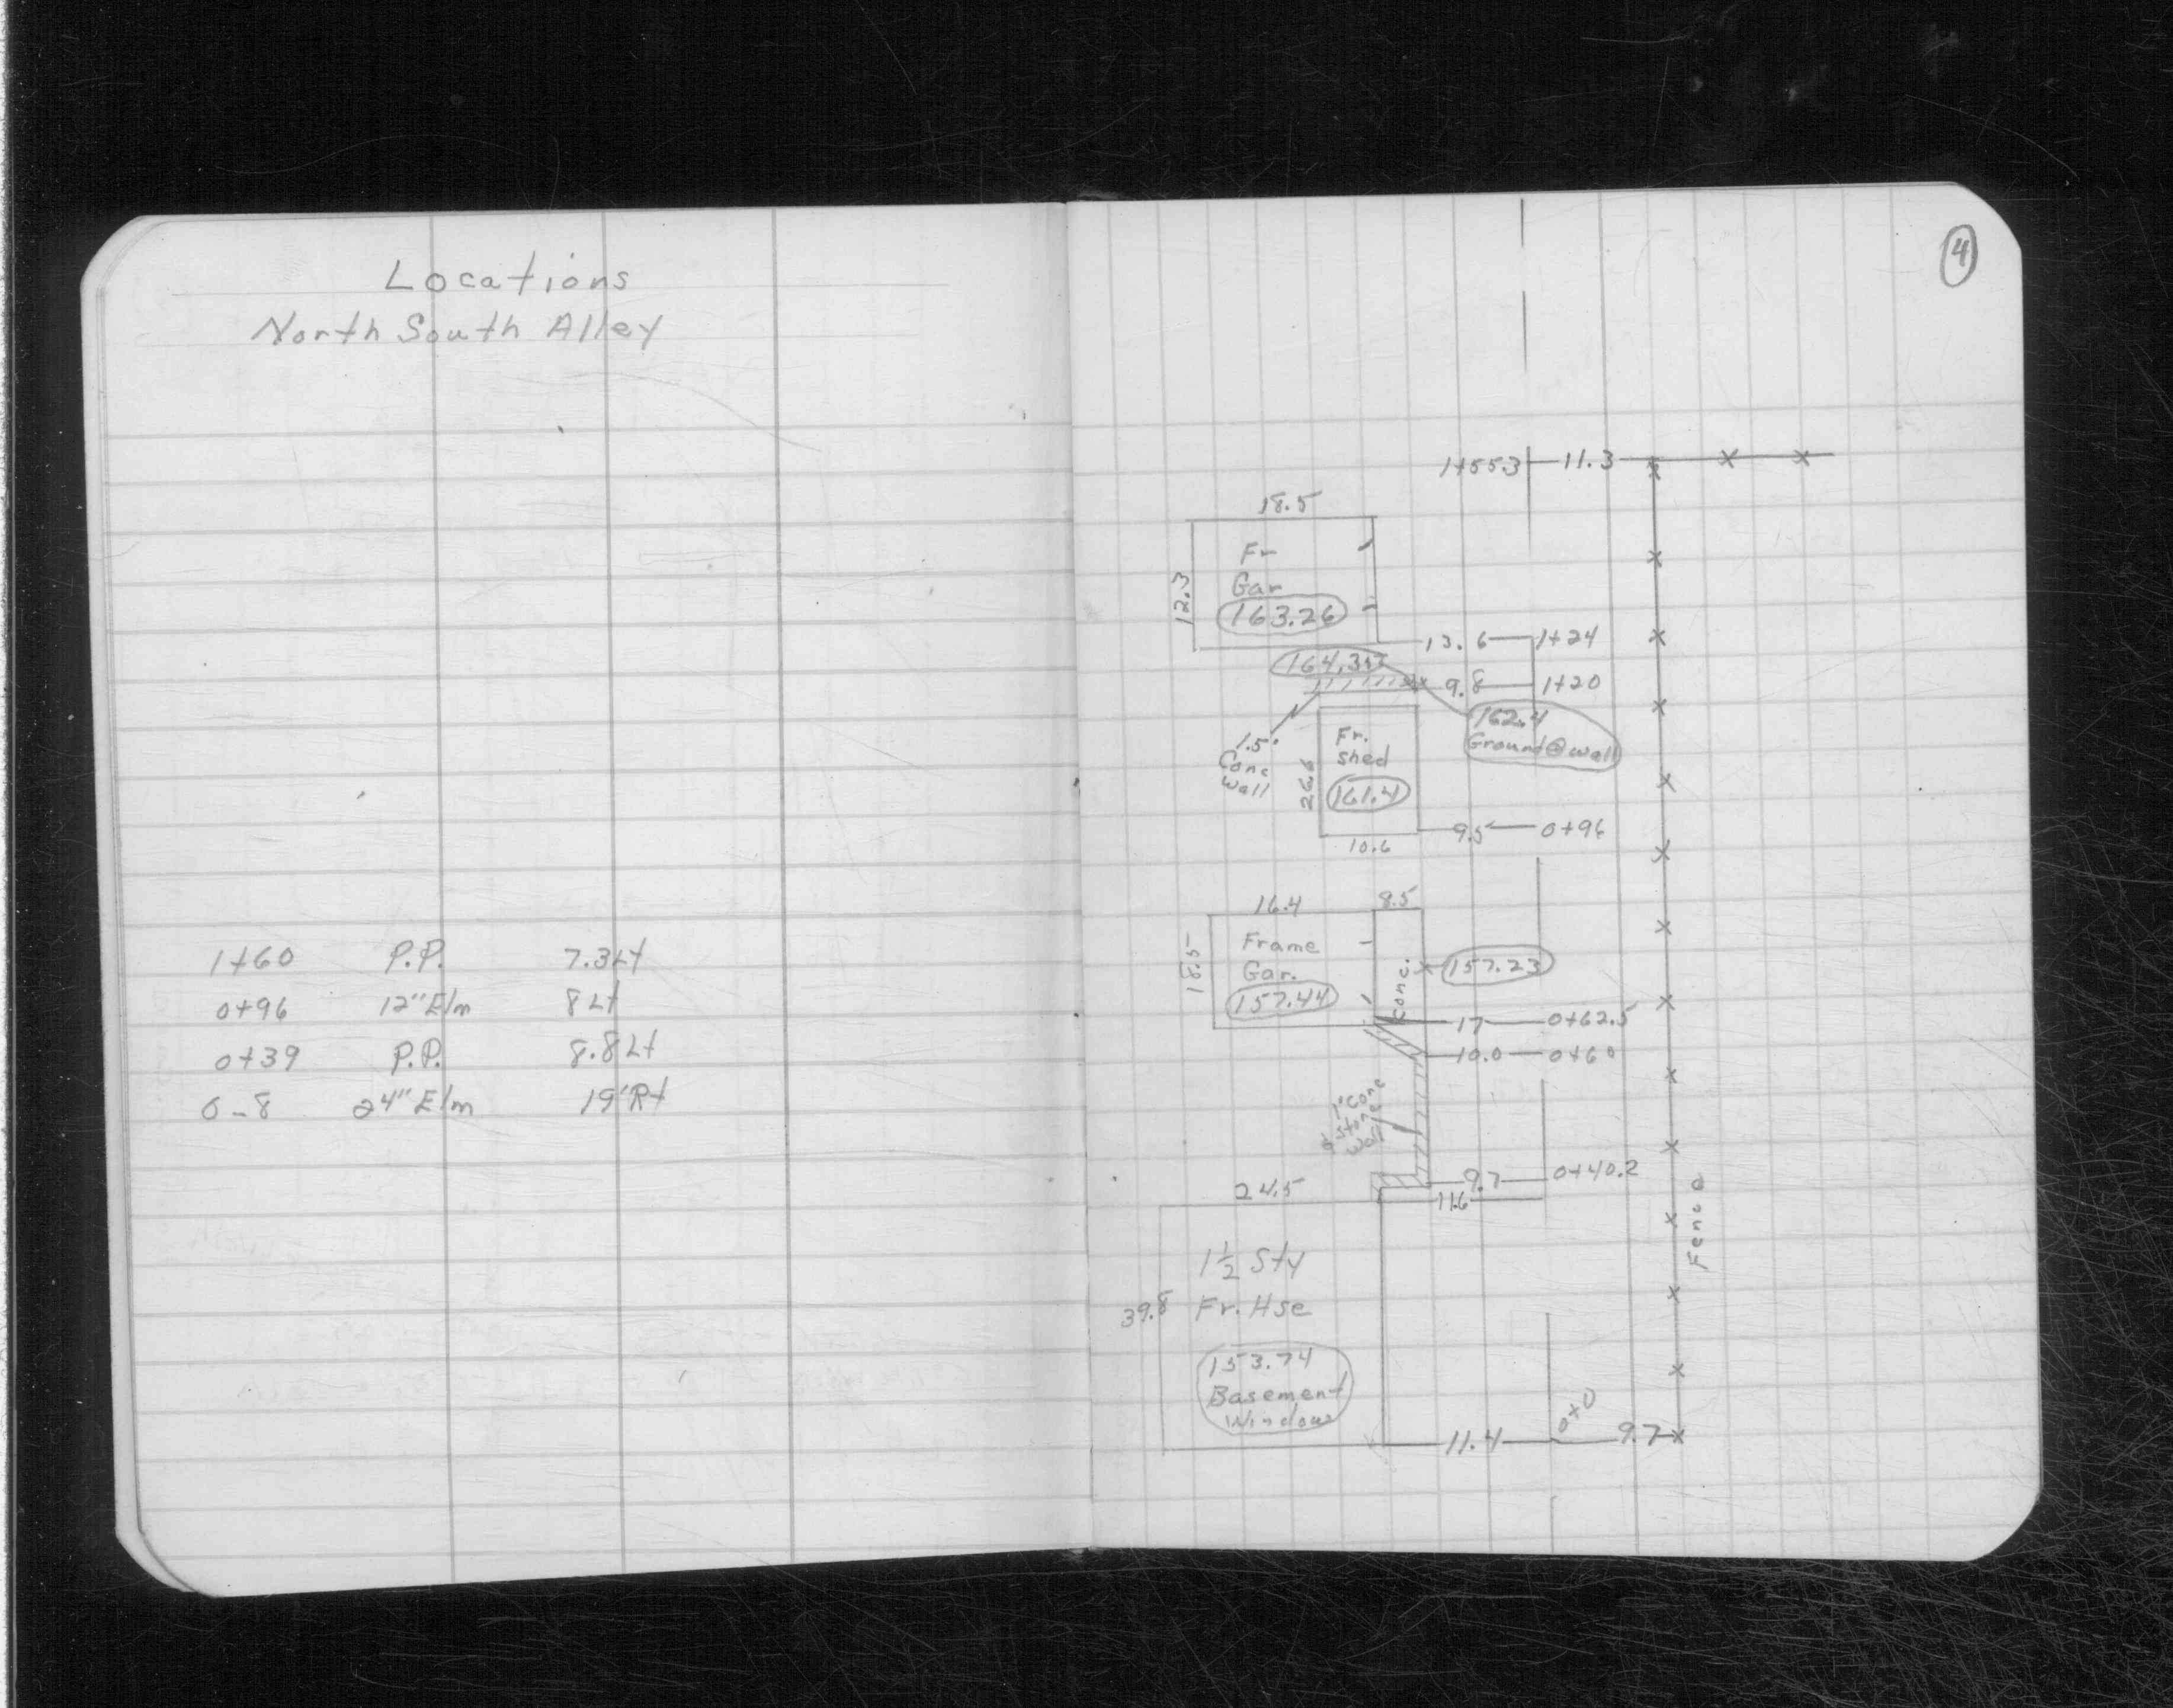 Locations
North South Alley
1+60 P.P. 7.3 Lt
0+96 12" Elm 8 Lt
0+39 P.P. 8.8 Lt
0-8 24" Elm 19' Rt
4
1+55.3 11.3
18.5
Fr
Gar
12.3
163.26
13.6 1+24
9.8 1+20
162.4
Ground @ wall
1.5'
Conc
Wall
Fr.
shed
161.4
9.5 0+96
10.6
16.4 8.5
Frame
Gar.
18.5
157.44
Conc.
157.23
17 0+62.5
10.0 0+60
1' Conc
& Stone
Wall
9.7 0+40.2
24.5 11.6
Fence
1½ Sty
39.8 Fr. Hse
153.74
Basement
Window
11.4 0+0 9.7